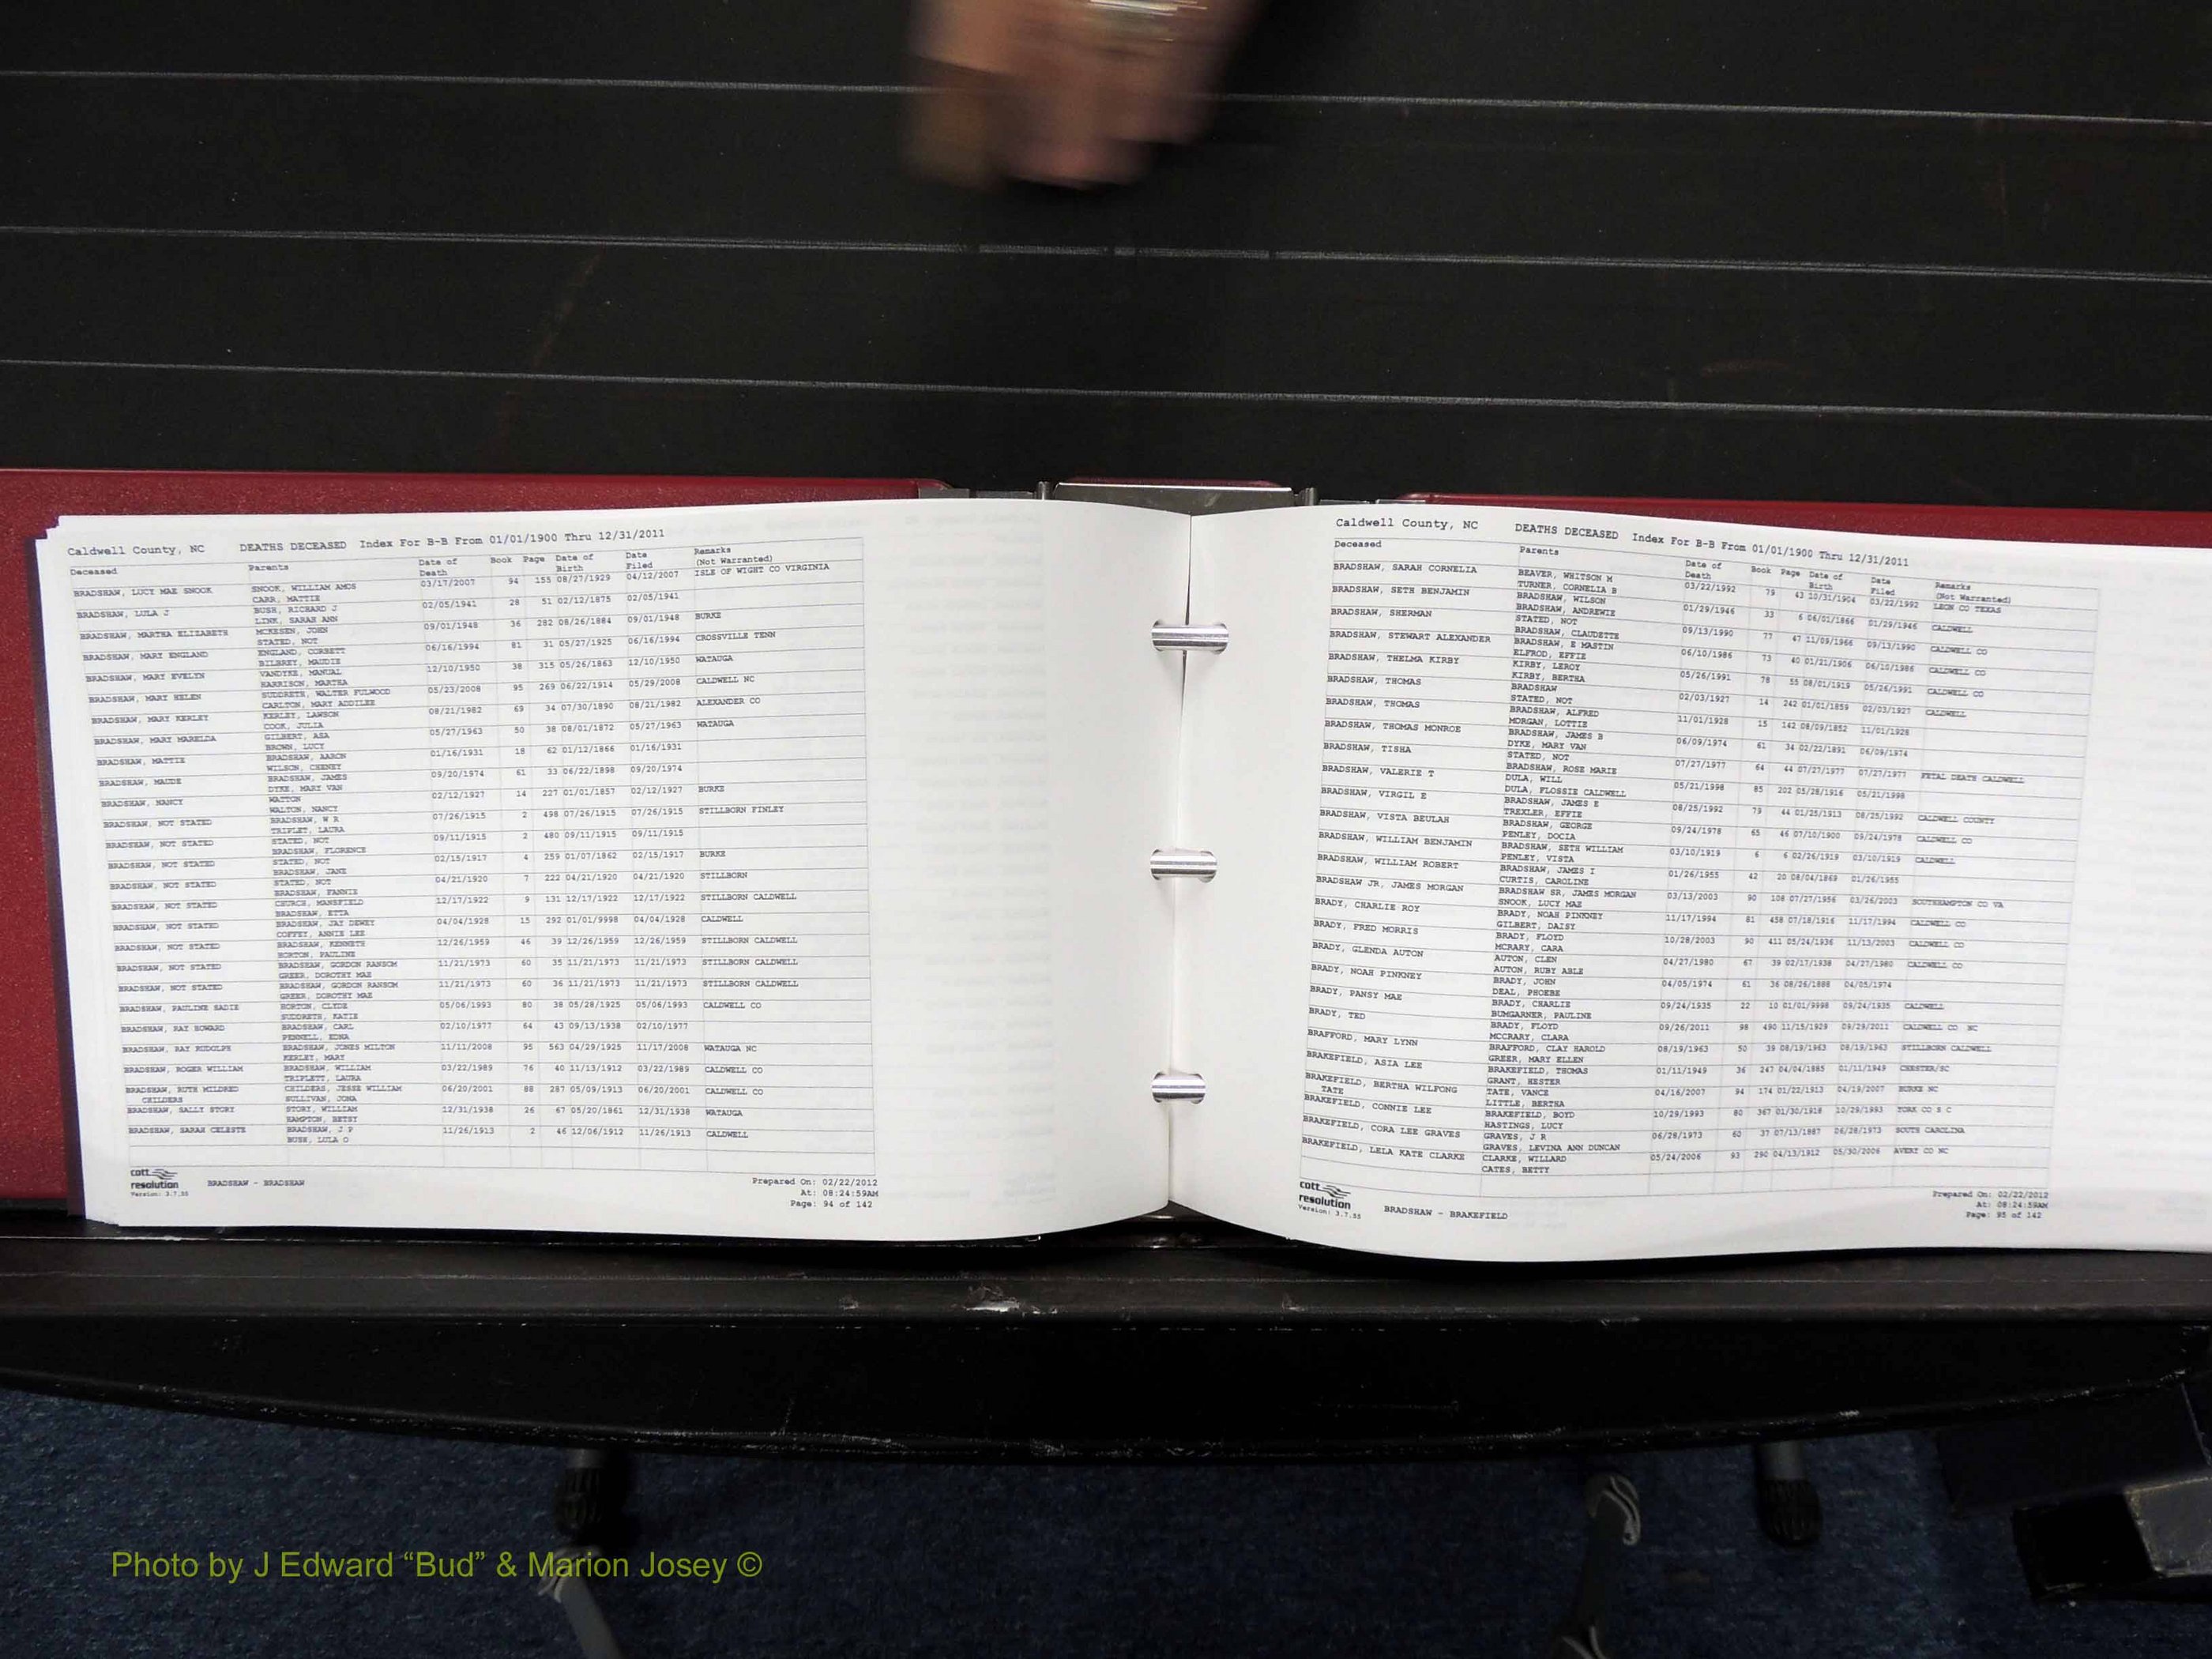 Caldwell County, NC DEATHS DECEASED Index For B-B From 01/01/1900 Thru 12/31/2011
Deceased Parents Date of Death Book Page Date of Birth Date Filed Remarks (Not Warranted)
BRADSHAW, LUCY MAE SNOOK SNOOK, WILLIAM AMOS 03/17/2007 94 155 08/27/1929 04/12/2007 ISLE OF WIGHT CO VIRGINIA
CARR, MATTIE
BRADSHAW, LULA J BUSH, RICHARD J 02/05/1941 28 51 02/12/1875 02/05/1941
LINK, SARAH ANN
BRADSHAW, MARTHA ELIZABETH MCKESEN, JOHN 09/01/1948 36 282 08/26/1884 09/01/1948 BURKE
STATED, NOT
BRADSHAW, MARY ENGLAND ENGLAND, CORBETT 06/16/1994 81 31 05/27/1925 06/16/1994 CROSSVILLE TENN
BILBREY, MAUDIE
BRADSHAW, MARY EVELYN VANDYKE, MANUAL 12/10/1950 38 315 05/26/1863 12/10/1950 WATAUGA
HARRISON, MARTHA
BRADSHAW, MARY HELEN SUDDRETH, WALTER FULWOOD 05/23/2008 95 269 06/22/1914 05/29/2008 CALDWELL NC
CARLTON, MARY ADDILEE
BRADSHAW, MARY KERLEY KERLEY, LAWSON 08/21/1982 69 34 07/30/1890 08/21/1982 ALEXANDER CO
COOK, JULIA
BRADSHAW, MARY MARELDA GILBERT, ASA 05/27/1963 50 38 08/01/1872 05/27/1963 WATAUGA
BROWN, LUCY
BRADSHAW, MATTIE BRADSHAW, AARON 01/16/1931 18 62 01/12/1866 01/16/1931
WILSON, CHENEY
BRADSHAW, MAUDE BRADSHAW, JAMES 09/20/1974 61 33 06/22/1898 09/20/1974
DYKE, MARY VAN
BRADSHAW, NANCY WATTON 02/12/1927 14 227 01/01/1857 02/12/1927 BURKE
WALTON, NANCY
BRADSHAW, NOT STATED BRADSHAW, W R 07/26/1915 2 498 07/26/1915 07/26/1915 STILLBORN FINLEY
TRIPLET, LAURA
BRADSHAW, NOT STATED STATED, NOT 09/11/1915 2 480 09/11/1915 09/11/1915
BRADSHAW, FLORENCE
BRADSHAW, NOT STATED STATED, NOT 02/15/1917 4 259 01/07/1862 02/15/1917 BURKE
BRADSHAW, JANE
BRADSHAW, NOT STATED STATED, NOT 04/21/1920 7 222 04/21/1920 04/21/1920 STILLBORN
BRADSHAW, FANNIE
BRADSHAW, NOT STATED CHURCH, MANSFIELD 12/17/1922 9 131 12/17/1922 12/17/1922 STILLBORN CALDWELL
BRADSHAW, ETTA
BRADSHAW, NOT STATED BRADSHAW, JAY DEWEY 04/04/1928 15 292 01/01/9998 04/04/1928 CALDWELL
COFFEY, ANNIE LEE
BRADSHAW, NOT STATED BRADSHAW, KENNETH 12/26/1959 46 39 12/26/1959 12/26/1959 STILLBORN CALDWELL
HORTON, PAULINE
BRADSHAW, NOT STATED BRADSHAW, GORDON RANSOM 11/21/1973 60 35 11/21/1973 11/21/1973 STILLBORN CALDWELL
GREER, DOROTHY MAE
BRADSHAW, NOT STATED BRADSHAW, GORDON RANSOM 11/21/1973 60 36 11/21/1973 11/21/1973 STILLBORN CALDWELL
GREER, DOROTHY MAE
BRADSHAW, PAULINE SADIE HORTON, CLYDE 05/06/1993 80 38 05/28/1925 05/06/1993 CALDWELL CO
SUDDRETH, KATIE
BRADSHAW, RAY HOWARD BRADSHAW, CARL 02/10/1977 64 43 09/13/1938 02/10/1977
PENNELL, EDNA
BRADSHAW, RAY RUDOLPH BRADSHAW, JONES MILTON 11/11/2008 95 563 04/29/1925 11/17/2008 WATAUGA NC
KERLEY, MARY
BRADSHAW, ROGER WILLIAM BRADSHAW, WILLIAM 03/22/1989 76 40 11/13/1912 03/22/1989 CALDWELL CO
TRIPLETT, LAURA
BRADSHAW, RUTH MILDRED CHILDERS, JESSE WILLIAM 06/20/2001 88 287 05/09/1913 06/20/2001 CALDWELL CO
CHILDERS SULLIVAN, JONA
BRADSHAW, SALLY STORY STORY, WILLIAM 12/31/1938 26 67 05/20/1861 12/31/1938 WATAUGA
HAMPTON, BETSY
BRADSHAW, SARAH CELESTE BRADSHAW, J P 11/26/1913 2 46 12/06/1912 11/26/1913 CALDWELL
BUSH, LULA O
cott resolution
Version: 3.7.55
BRADSHAW - BRADSHAW
Prepared On: 02/22/2012
At: 08:24:59AM
Page: 94 of 142
Caldwell County, NC DEATHS DECEASED Index For B-B From 01/01/1900 Thru 12/31/2011
Deceased Parents Date of Death Book Page Date of Birth Date Filed Remarks (Not Warranted)
BRADSHAW, SARAH CORNELIA BEAVER, WHITSON M 03/22/1992 79 43 10/31/1904 03/22/1992 LEON CO TEXAS
TURNER, CORNELIA B
BRADSHAW, SETH BENJAMIN BRADSHAW, WILSON 01/29/1946 33 6 06/01/1866 01/29/1946 CALDWELL
BRADSHAW, ANDREWIE
BRADSHAW, SHERMAN STATED, NOT 09/13/1990 77 47 11/09/1966 09/13/1990 CALDWELL CO
BRADSHAW, CLAUDETTE
BRADSHAW, STEWART ALEXANDER BRADSHAW, E MASTIN 06/10/1986 73 40 01/21/1906 06/10/1986 CALDWELL CO
ELFROD, EFFIE
BRADSHAW, THELMA KIRBY KIRBY, LEROY 05/26/1991 78 55 08/01/1919 05/26/1991 CALDWELL CO
KIRBY, BERTHA
BRADSHAW, THOMAS BRADSHAW 02/03/1927 14 242 01/01/1859 02/03/1927 CALDWELL
STATED, NOT
BRADSHAW, THOMAS BRADSHAW, ALFRED 11/01/1928 15 142 08/09/1852 11/01/1928
MORGAN, LOTTIE
BRADSHAW, THOMAS MONROE BRADSHAW, JAMES B 06/09/1974 61 34 02/22/1891 06/09/1974
DYKE, MARY VAN
BRADSHAW, TISHA STATED, NOT 07/27/1977 64 44 07/27/1977 07/27/1977 FETAL DEATH CALDWELL
BRADSHAW, ROSE MARIE
BRADSHAW, VALERIE T DULA, WILL 05/21/1998 85 202 05/28/1916 05/21/1998
DULA, FLOSSIE CALDWELL
BRADSHAW, VIRGIL E BRADSHAW, JAMES E 08/25/1992 79 44 01/25/1913 08/25/1992 CALDWELL COUNTY
TREXLER, EFFIE
BRADSHAW, VISTA BEULAH BRADSHAW, GEORGE 09/24/1978 65 46 07/10/1900 09/24/1978 CALDWELL CO
PENLEY, DOCIA
BRADSHAW, WILLIAM BENJAMIN BRADSHAW, SETH WILLIAM 03/10/1919 6 6 02/26/1919 03/10/1919 CALDWELL
PENLEY, VISTA
BRADSHAW, WILLIAM ROBERT BRADSHAW, JAMES I 01/26/1955 42 20 08/04/1869 01/26/1955
CURTIS, CAROLINE
BRADSHAW JR, JAMES MORGAN BRADSHAW SR, JAMES MORGAN 03/13/2003 90 108 07/27/1956 03/26/2003 SOUTHAMPTON CO VA
SNOOK, LUCY MAE
BRADY, CHARLIE ROY BRADY, NOAH PINKNEY 11/17/1994 81 458 07/18/1916 11/17/1994 CALDWELL CO
GILBERT, DAISY
BRADY, FRED MORRIS BRADY, FLOYD 10/28/2003 90 411 05/24/1936 11/13/2003 CALDWELL CO
MCRARY, CARA
BRADY, GLENDA AUTON AUTON, CLEN 04/27/1980 67 39 02/17/1938 04/27/1980 CALDWELL CO
AUTON, RUBY ABLE
BRADY, NOAH PINKNEY BRADY, JOHN 04/05/1974 61 36 08/26/1888 04/05/1974
DEAL, PHOEBE
BRADY, PANSY MAE BRADY, CHARLIE 09/24/1935 22 10 01/01/9998 09/24/1935 CALDWELL
BUMGARNER, PAULINE
BRADY, TED BRADY, FLOYD 09/26/2011 98 490 11/15/1929 09/29/2011 CALDWELL CO NC
MCCRARY, CLARA
BRAFFORD, MARY LYNN BRAFFORD, CLAY HAROLD 08/19/1963 50 39 08/19/1963 08/19/1963 STILLBORN CALDWELL
GREER, MARY ELLEN
BRAKEFIELD, ASIA LEE BRAKEFIELD, THOMAS 01/11/1949 36 247 04/04/1885 01/11/1949 CHESTER/SC
GRANT, HESTER
BRAKEFIELD, BERTHA WILFONG TATE, VANCE 04/16/2007 94 174 01/22/1913 04/19/2007 BURKE NC
TATE LITTLE, BERTHA
BRAKEFIELD, CONNIE LEE BRAKEFIELD, BOYD 10/29/1993 80 367 01/30/1918 10/29/1993 YORK CO S C
HASTINGS, LUCY
BRAKEFIELD, CORA LEE GRAVES GRAVES, J R 06/28/1973 60 37 07/13/1887 06/28/1973 SOUTH CAROLINA
GRAVES, LEVINA ANN DUNCAN
BRAKEFIELD, LELA KATE CLARKE CLARKE, WILLARD 05/24/2006 93 290 04/13/1912 05/30/2006 AVERY CO NC
CATES, BETTY
cott resolution
Version: 3.7.55
BRADSHAW - BRAKEFIELD
Prepared On: 02/22/2012
At: 08:24:59AM
Page: 95 of 142
Photo by J Edward “Bud” & Marion Josey ©